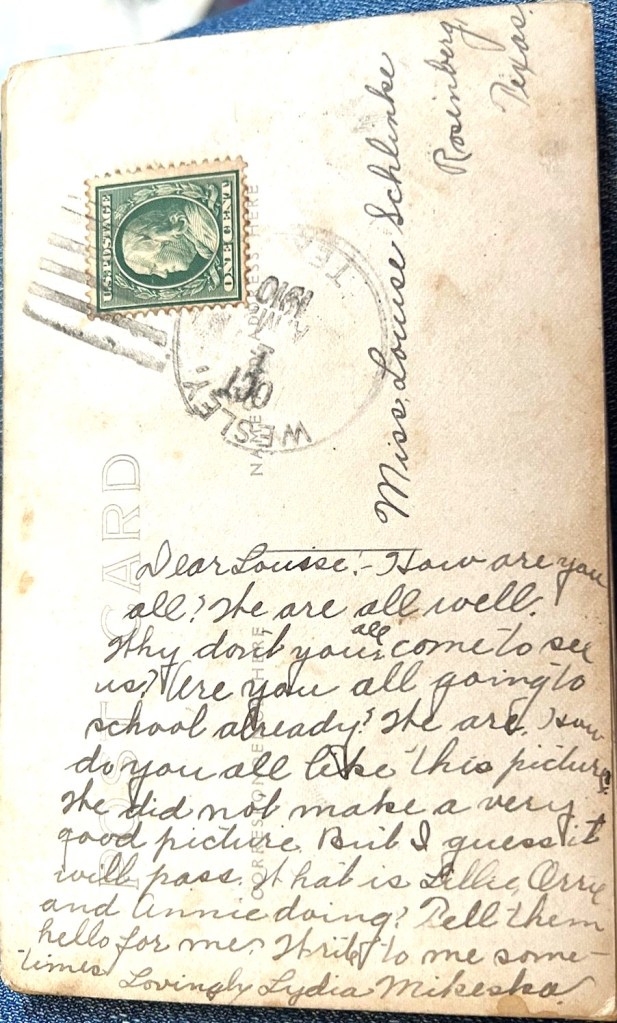 POST CARD
U.S. POSTAGE
ONE CENT
WESLEY,
TEX
OCT
7
A.M.
1910
NAME AND ADDRESS HERE
CORRESPONDENCE HERE
Miss, Louise Schlinke
Rosinberg,
Texas.
Dear Lousse:- How are you
all? We are all well.
Why don't you all come to see
us? Are you all going to
school already? We are. How
do you all like this picture?
We did not make a very
good picture. But I guess it
will pass. What is Lillie, Orrie
and Annie doing? Tell them
hello for me. Write to me some-
times. Lovingly Lydia Mikeska.